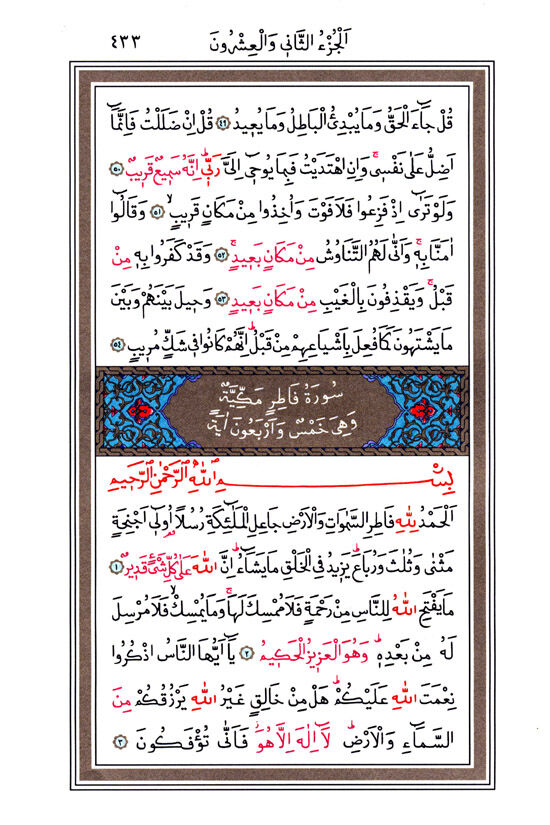 اَلْجُزْءُ الثَّانِي وَالْعِشْرُونَ ٤٣٣
قُلْ جَٓاءَ الْحَقُّ وَمَا يُبْدِئُ الْبَاطِلُ وَمَا يُع۪يدُ ﴿٤٩﴾ قُلْ اِنْ ضَلَلْتُ فَاِنَّمَٓا
اَضِلُّ عَلٰى نَفْس۪يۚ وَاِنِ اهْتَدَيْتُ فَبِمَا يُوح۪ٓي اِلَيَّ رَبّ۪يۜ اِنَّهُ سَم۪يعٌ قَر۪يبٌ ﴿٥٠﴾
وَلَوْ تَرٰٓى اِذْ فَزِعُوا فَلَا فَوْتَ وَاُخِذُوا مِنْ مَكَانٍ قَر۪يبٍۙ ﴿٥١﴾ وَقَالُٓوا
اٰمَنَّا بِه۪ۚ وَاَنّٰى لَهُمُ التَّنَاوُشُ مِنْ مَكَانٍ بَع۪يدٍۚ ﴿٥٢﴾ وَقَدْ كَفَرُوا بِه۪ مِنْ
قَبْلُۚ وَيَقْذِفُونَ بِالْغَيْبِ مِنْ مَكَانٍ بَع۪يدٍ ﴿٥٣﴾ وَح۪يلَ بَيْنَهُمْ وَبَيْنَ
مَا يَشْتَهُونَ كَمَا فُعِلَ بِاَشْيَاعِهِمْ مِنْ قَبْلُۜ اِنَّهُمْ كَانُوا ف۪ي شَكٍّ مُر۪يبٍ ﴿٥٤﴾
سُورَةُ فَاطِرٍ مَكِّيَّةٌ
وَهِيَ خَمْسٌ وَاَرْبَعُونَ اٰيَةً
بِسْمِ اللّٰهِ الرَّحْمٰنِ الرَّح۪يمِ
اَلْحَمْدُ لِلّٰهِ فَاطِرِ السَّمٰوَاتِ وَالْاَرْضِ جَاعِلِ الْمَلٰٓئِكَةِ رُسُلًا اُو۬ل۪ٓي اَجْنِحَةٍ
مَثْنٰى وَثُلٰثَ وَرُبَاعَۜ يَز۪يدُ فِي الْخَلْقِ مَا يَشَٓاءُۜ اِنَّ اللّٰهَ عَلٰى كُلِّ شَيْءٍ قَد۪يرٌ ﴿١﴾
مَا يَفْتَحِ اللّٰهُ لِلنَّاسِ مِنْ رَحْمَةٍ فَلَا مُمْسِكَ لَهَاۚ وَمَا يُمْسِكْۙ فَلَا مُرْسِلَ
لَهُ مِنْ بَعْدِه۪ۜ وَهُوَ الْعَز۪يزُ الْحَك۪يمُ ﴿٢﴾ يَٓا اَيُّهَا النَّاسُ اذْكُرُوا
نِعْمَتَ اللّٰهِ عَلَيْكُمْۜ هَلْ مِنْ خَالِقٍ غَيْرُ اللّٰهِ يَرْزُقُكُمْ مِنَ
السَّمَٓاءِ وَالْاَرْضِۜ لَٓا اِلٰهَ اِلَّا هُوَۘ فَاَنّٰى تُؤْفَكُونَ ﴿٣﴾